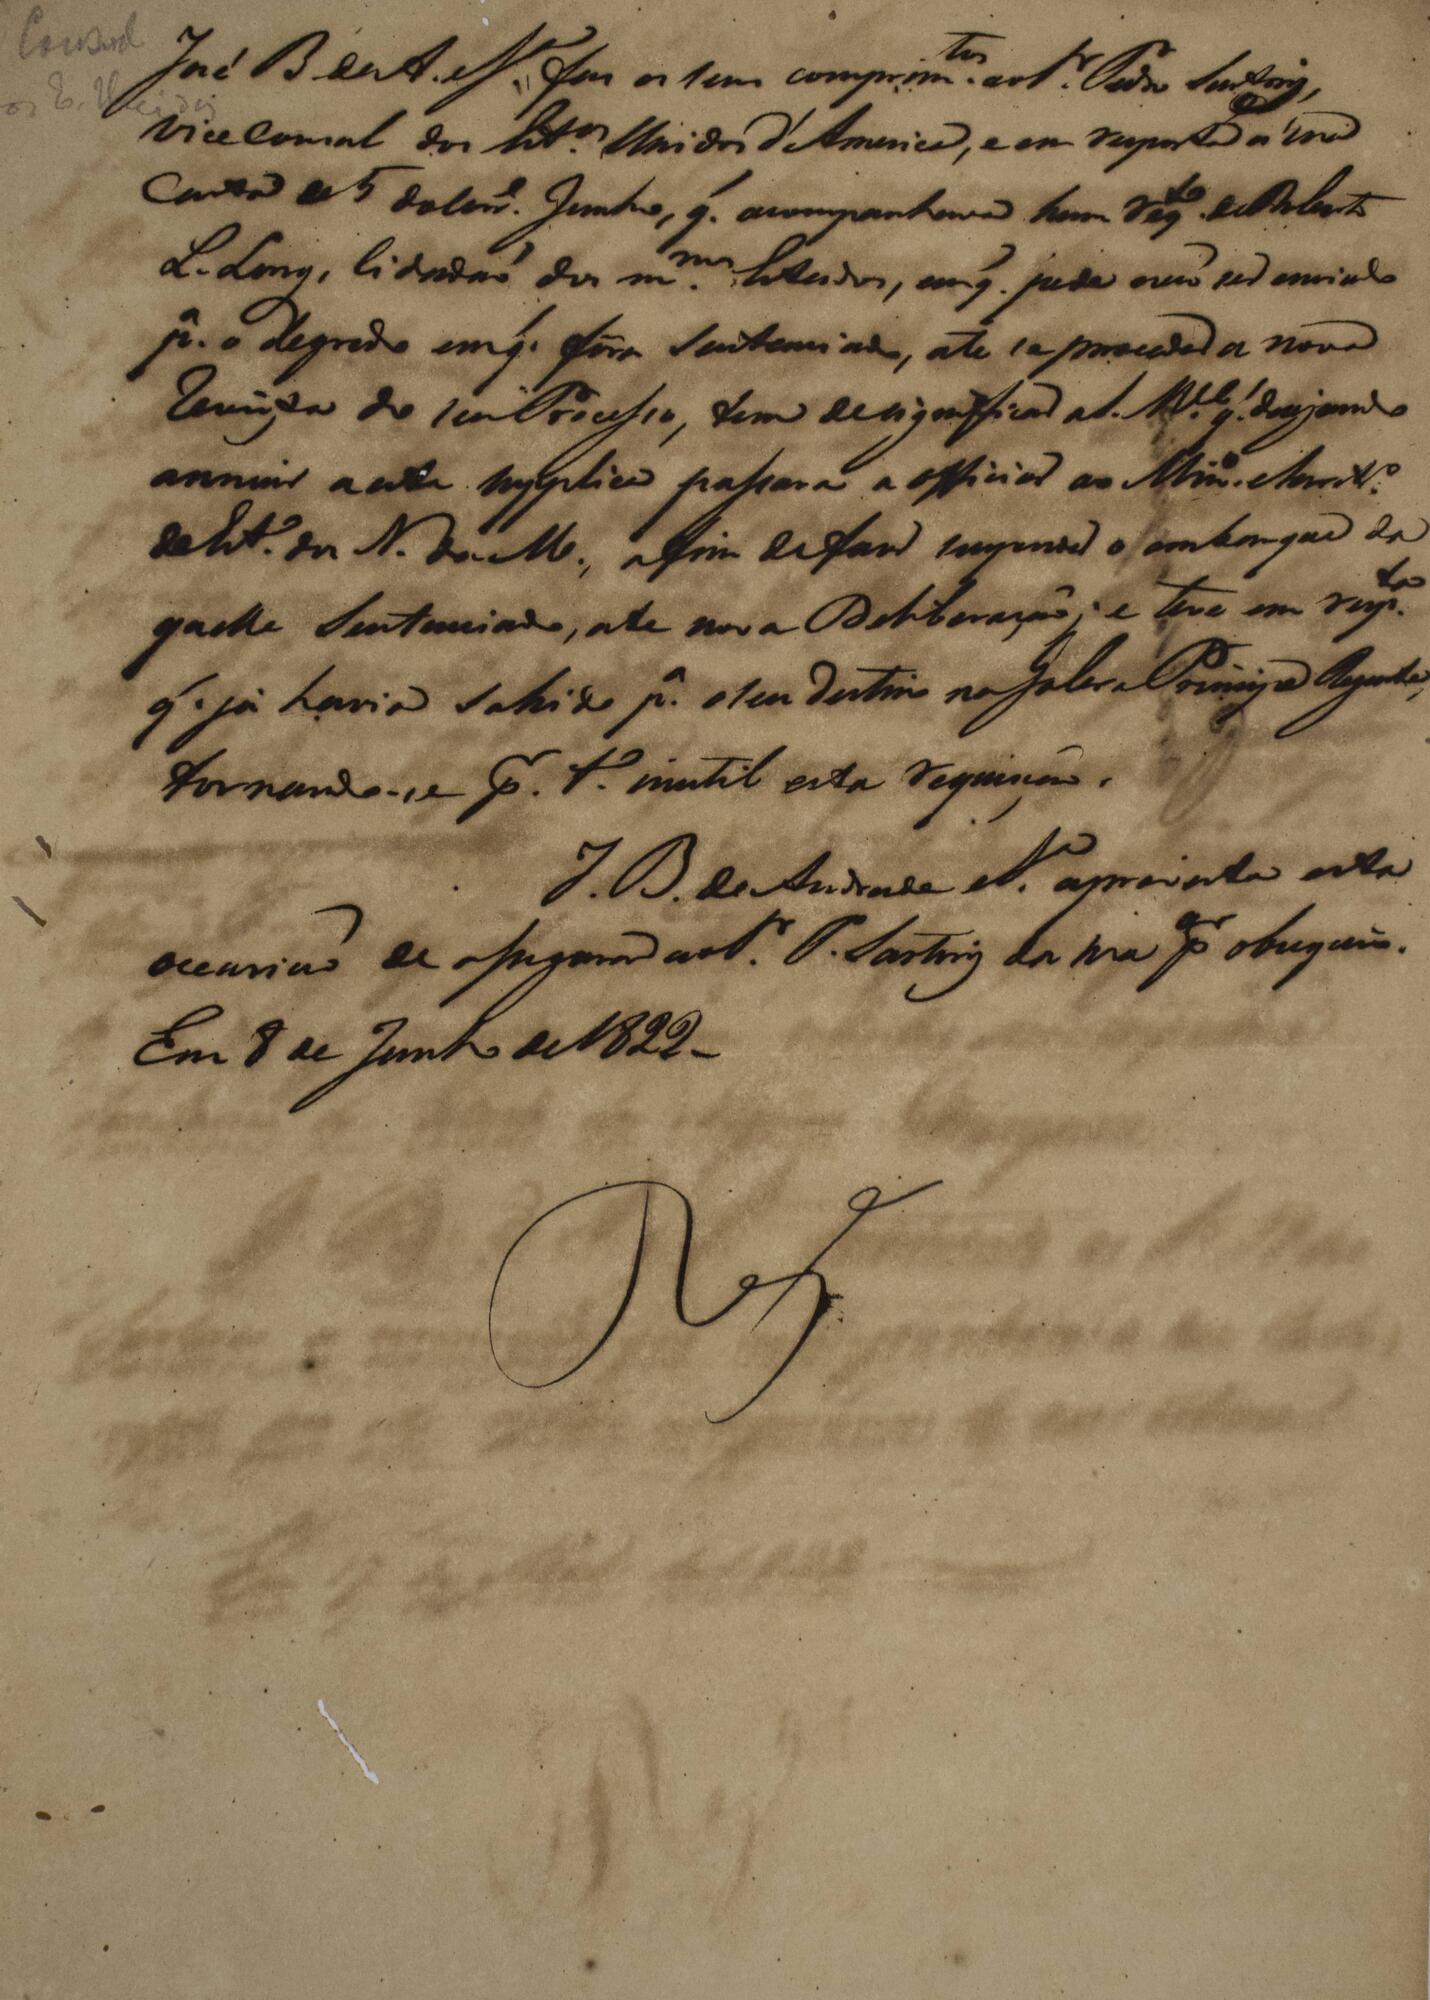 Consul
os E. Unidos
José B. de A. e S.ª faz os seus comprim.tos ao S.r Pedro Sartoriz,
Vice Consul dos Est.os Unidos d'America, e em resposta á sua
Carta de 5 do corr.e Junho, q. acompanhava hum req.to de Roberto
L. Long, Cidadaõ dos m.mos Estados, em q. pede naõ ser enviado
p.ª o degredo em q. fôra Sentenciado, até se proceder a nova
Revista do seu Processo, tem de significar a S. M.ce q. desejando
annuir a esta supplica passara a officiar ao Min.o e Secret.o
de Est.o dos N. da M., a fim de fazer suspender o embarque da
quelle Sentenciado, até nova Deliberaçaõ; e teve em resp.ta
q. já havia sahido p.ª o seu destino na Galera Principe Regente,
tornando-se p. t.o inutil esta requisiçaõ.
J. B. de Andrade e S.ª aproveita esta
occasiaõ de assegurar ao S.r P. Sartoriz da sua p.or obrigaçaõ.
Em 8 de Junho de 1822_